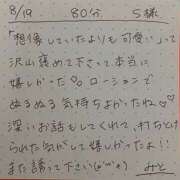 8/19 80分 S様
「想像していたよりも可愛い」って
沢山褒めて下さって本当に
嬉しかった。ローションで
ぬるぬる気持ちよかったね♡
深いお話もしてくれて、打ちとけ
られた気がして嬉しかったよ!!
また誘って下さい(๑'ᵕ'๑) みと